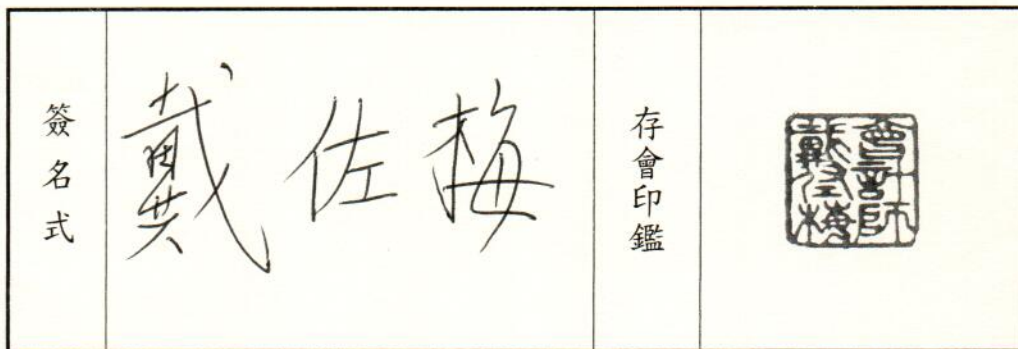 簽名式
戴佐梅
存會印鑑
會計師
戴佐梅